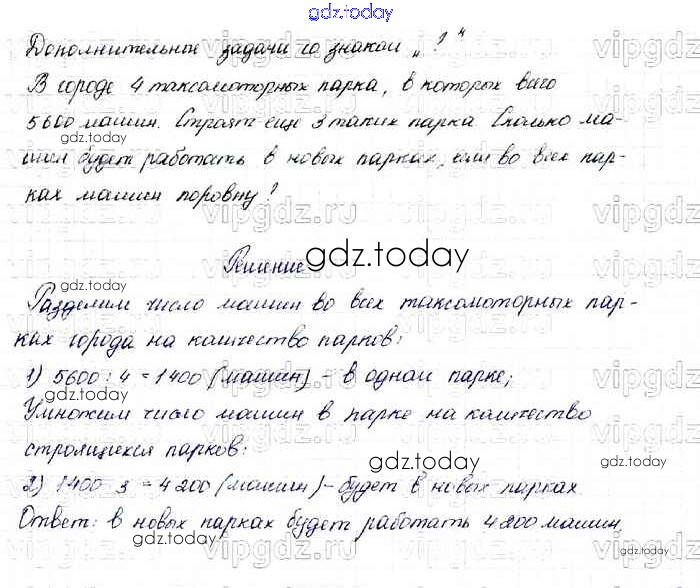 gdz.today
Дополнительные задачи со знаком „?"
В городе 4 таксомоторных парка, в которых всего
5600 машин. Строят еще 3 таких парка. Сколько ма-
шин будет работать в новых парках, если во всех пар-
ках машин поровну?
Решение
Разделим число машин во всех таксомоторных пар-
ках города на количество парков:
1) 5600 : 4 = 1400 (машин) – в одном парке;
Умножим число машин в парке на количество
строящихся парков:
2) 1400 · 3 = 4200 (машин) – будет в новых парках.
Ответ: в новых парках будет работать 4200 машин.
gdz.today
gdz.today
gdz.today
gdz.today
gdz.today
gdz.today
gdz.today
gdz.today